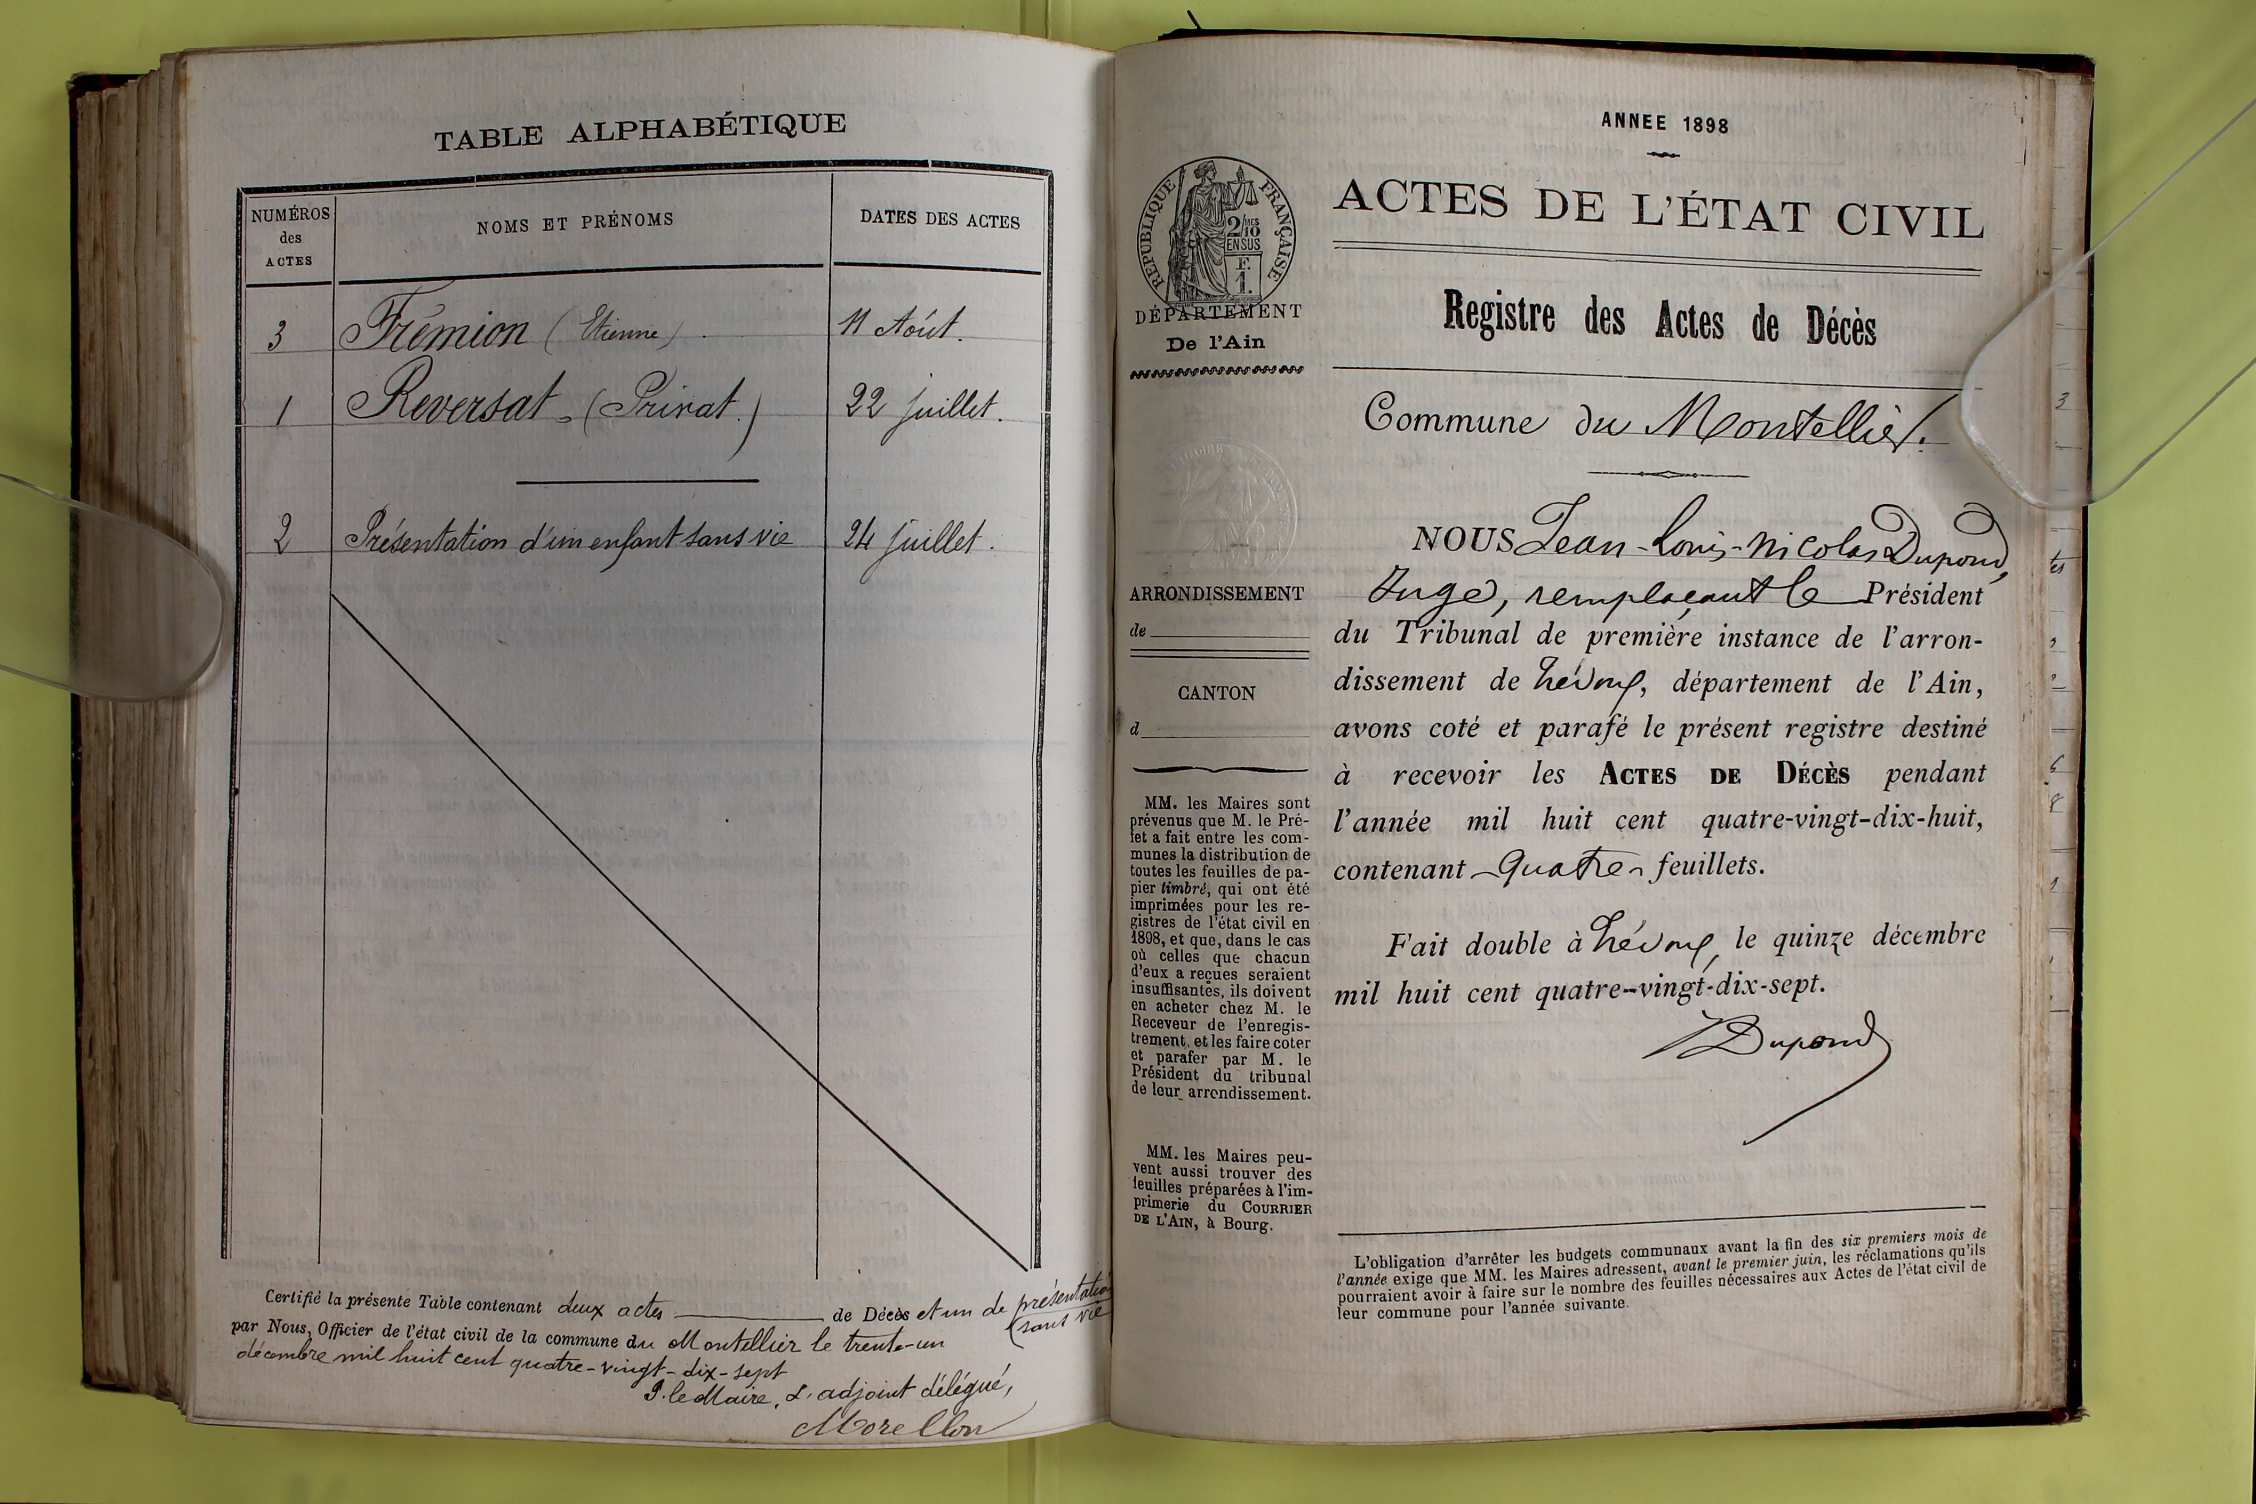 TABLE ALPHABÉTIQUE
NUMÉROS
des
ACTES
NOMS ET PRÉNOMS
DATES DES ACTES
3 Frémion (Etienne) 11 Aôut.
1 Reversat (Privat.) 22 juillet.
2 Présentation d'un enfant sans vie 24 juillet.
Certifié la présente Table contenant deux actes de Décès et un de présentation
sans vie
par Nous, Officier de l'état civil de la commune du Montellier le trente-un
décembre mil huit cent quatre-vingt-dix-sept
P. le Maire, L'adjoint délégué,
Morellon
ANNEE 1898
ACTES DE L'ÉTAT CIVIL
RÉPUBLIQUE FRANÇAISE
2/10 MES
EN SUS
F.
1.
DÉPARTEMENT
De l'Ain
Registre des Actes de Décès
Commune du Montellier.
ARRONDISSEMENT
de
CANTON
d
MM. les Maires sont
prévenus que M. le Pré-
fet a fait entre les com-
munes la distribution de
toutes les feuilles de pa-
pier timbré, qui ont été
imprimées pour les re-
gistres de l'état civil en
1898, et que, dans le cas
où celles que chacun
d'eux a reçues seraient
insuffisantes, ils doivent
en acheter chez M. le
Receveur de l'enregis-
trement, et les faire coter
et parafer par M. le
Président du tribunal
de leur arrondissement.
MM. les Maires peu-
vent aussi trouver des
feuilles préparées à l'im-
primerie du COURRIER
DE L'AIN, à Bourg.
NOUS Jean-Louis-Nicolas Dupond,
Juge, remplaçant le Président
du Tribunal de première instance de l'arron-
dissement de Trévoux, département de l'Ain,
avons coté et parafé le présent registre destiné
à recevoir les ACTES DE DÉCÈS pendant
l'année mil huit cent quatre-vingt-dix-huit,
contenant quatre feuillets.
Fait double à Trévoux, le quinze décembre
mil huit cent quatre-vingt-dix-sept.
Dupond
L'obligation d'arrêter les budgets communaux avant la fin des six premiers mois de
l'année exige que MM. les Maires adressent, avant le premier juin, les réclamations qu'ils
pourraient avoir à faire sur le nombre des feuilles nécessaires aux Actes de l'état civil de
leur commune pour l'année suivante.